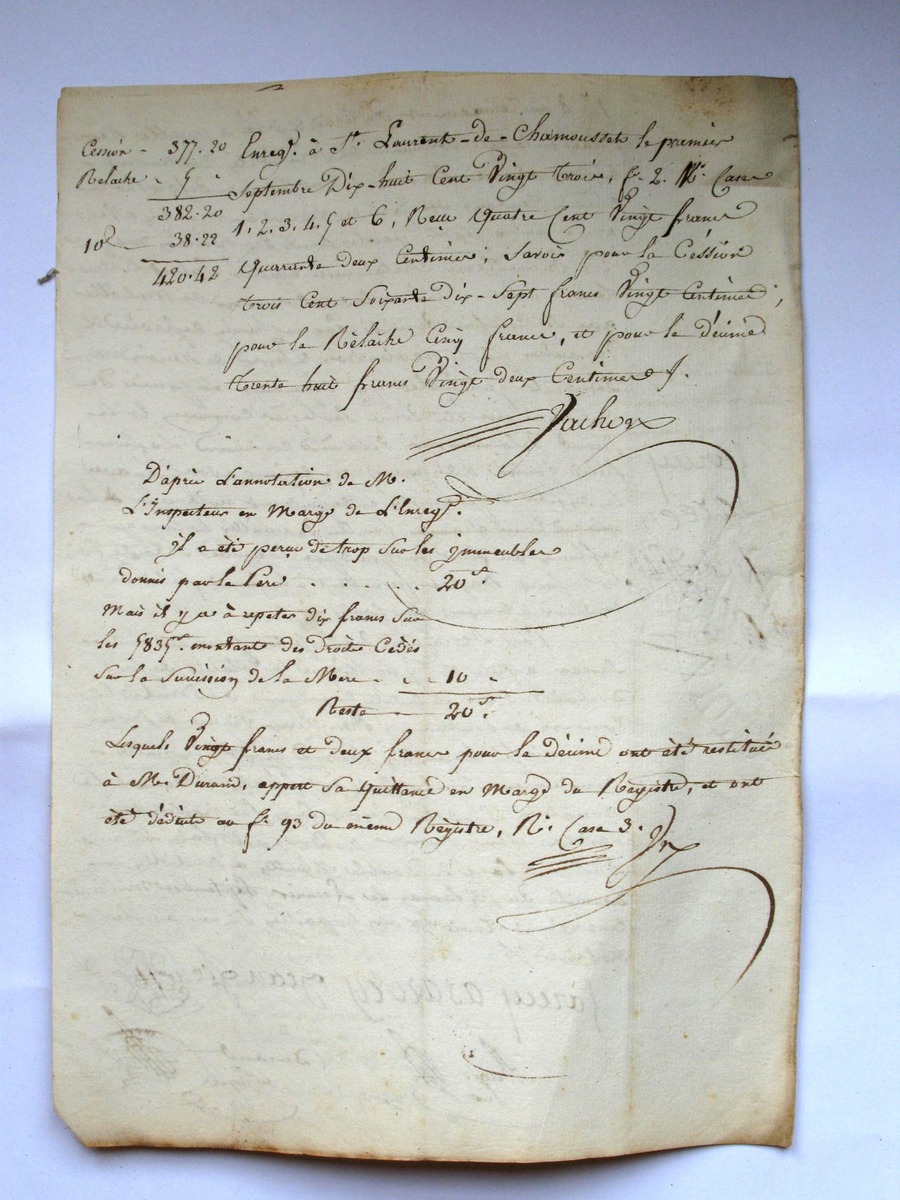 Cession - 377.20
Relache - 5 -
382.20
10e - 38.22
420.42
Enregt. à St. Laurent-de-Chamousset le premier
Septembre Dix-huit Cent Vingt Trois, f° 2. Ro. Cases
1. 2. 3. 4. 5 et 6, Reçu Quatre Cent Vingt francs
Quarante deux Centimes; Savoir pour la Céssion
Trois Cent Soixante dix-Sept francs Vingt Centimes;
pour le Rélâche Cinq francs, et pour le décime
Trente huit francs Vingt deux Centimes.
D'après L'annotation de M.
L'Inspecteur en Marge de L'Enregt.
il a été perçu de trop Sur les immeubles
donnés par le Pere . . . . . 
Mais il y a à repeter dix francs Sur
les 5835f. montant des Droits Cedés
Sur la Succéssion de la Mere - - - 10 -
Reste - 20f.
Lesquels Vingt francs et deux francs pour le décime ont été restitués
à M. Durand, appert Sa Quittance en Marge du Régistre, et ont
été déduits au f° 93 du même Régistre, Ro. Case 3.